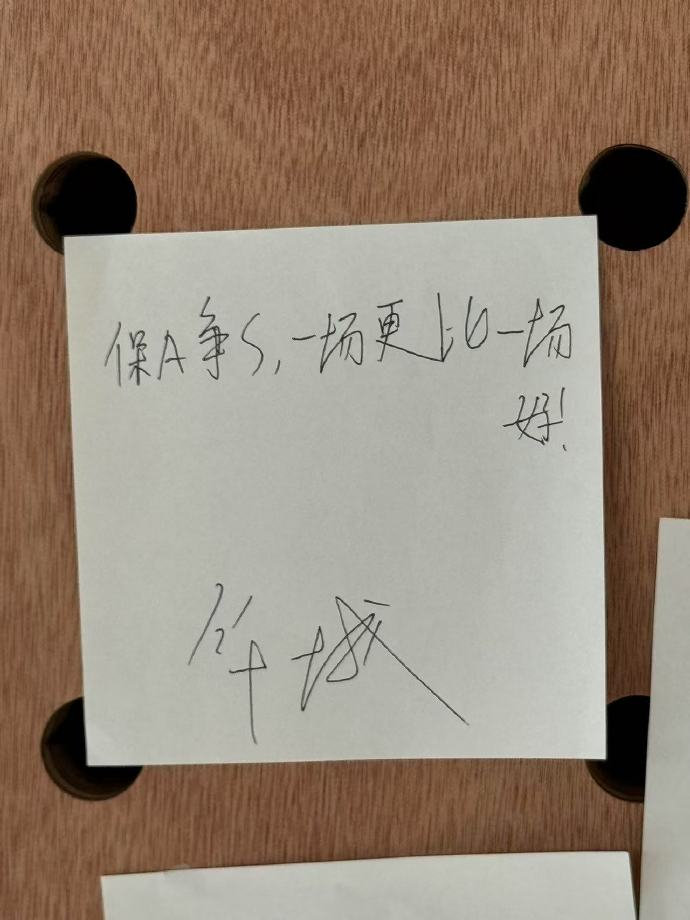 保A争S,一场更比一场
好!
华城